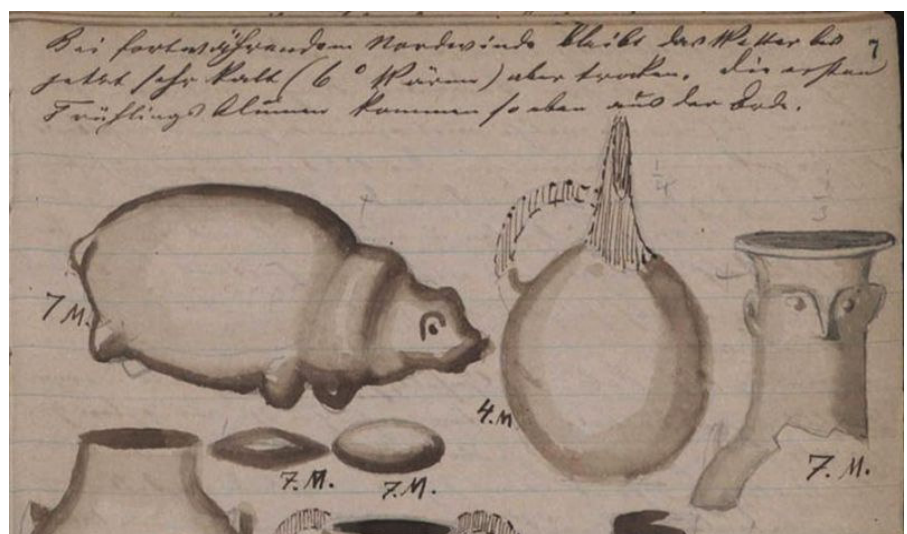 Bei fortwährendem Nordwinde bleibt das Wetter bis 7
jetzt sehr kalt (6° Wärme) aber trocken. Die ersten
Frühlingsblumen kommen so eben aus der Erde.
1/4
7 M.
4. M
7. M.
7. M. 7. M.